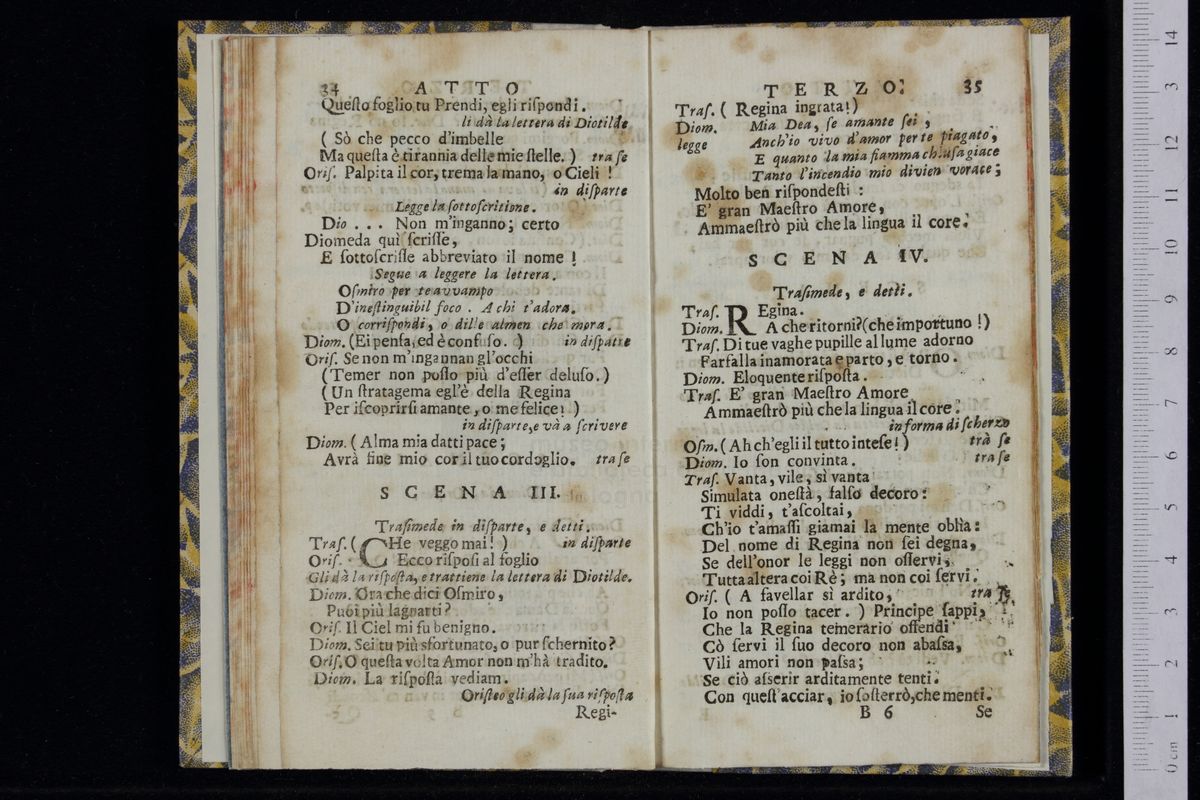 34 ATTO
Questo foglio tu Prendi, egli rispondi.
li dà la lettera di Diotilde
( Sò che pecco d'imbelle
Ma questa è tirannia delle mie stelle. ) tra se
Oris. Palpita il cor, trema la mano, o Cieli !
in disparte
Legge la sottoscritione.
Dio . . . Non m'inganno; certo
Diomeda quì scrisse,
E sottoscrisse abbreviato il nome !
Segue a leggere la lettera.
Osmiro per te avvampo
D'inestinguibil foco . A chi t'adora.
O corrispondi, o dille almen che mora.
Diom. (Ei pensa, ed è confuso. ) in disparte
Oris. Se non m'ingannan gl'occhi
(Temer non posso più d'esser deluso.)
(Un stratagema egl'è della Regina
Per iscoprirsi amante, o me felice! )
in disparte, e và a scrivere
Diom. (Alma mia datti pace;
Avrà fine mio cor il tuo cordoglio. tra se
SCENA III.
Trasimede in disparte, e detti.
Tras. ( CHe veggo mai! ) in disparte
Oris. Ecco risposi al foglio
Gli dà la risposta, e trattiene la lettera di Diotilde.
Diom. Ora che dici Osmiro,
Puoi più lagnarti?
Oris. Il Ciel mi fu benigno.
Diom. Sei tu più sfortunato, o pur schernito?
Oris. O questa volta Amor non m'hà tradito.
Diom. La risposta vediam.
Oristeo gli dà la sua risposta
Regi-
TERZO. 35
Tras. ( Regina ingrata!)
Diom. Mia Dea, se amante sei,
legge Anch'io vivo d'amor per te piagato,
E quanto la mia fiamma chiusa giace
Tanto l'incendio mio divien vorace;
Molto ben rispondesti :
E' gran Maestro Amore,
Ammaestrò più che la lingua il core.
SCENA IV.
Trasimede, e detti.
Tras. REgina.
Diom. A che ritorni? (che importuno !)
Tras. Di tue vaghe pupille al lume adorno
Farfalla inamorata e parto, e torno.
Diom. Eloquente risposta.
Tras. E' gran Maestro Amore
Ammaestrò più che la lingua il core.
in forma di scherzo
Osm. (Ah ch'egli il tutto intese! ) trà se
Diom. Io son convinta. tra se
Tras. Vanta, vile, sì vanta
Simulata onestà, falso decoro:
Ti viddi, t'ascoltai,
Ch'io t'amassi giamai la mente oblìa:
Del nome di Regina non sei degna,
Se dell'onor le leggi non osservi,
Tutta altera coi Rè; ma non coi servi.
Oris. ( A favellar sì ardito, tra se
Io non posso tacer. ) Principe sappi,
Che la Regina temerario offendi
Cò servi il suo decoro non abassa,
Vili amori non passa;
Se ciò asserir arditamente tenti.
Con quest'acciar, io sosterrò, che menti.
B 6 Se